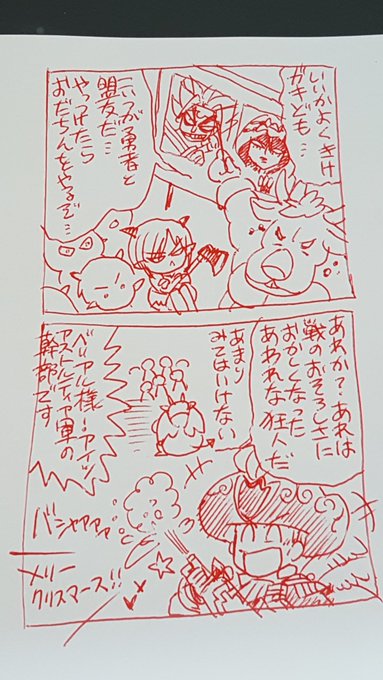 いいかよくきけ
ガキども…
こいつが勇者と
盟友だ…
やっつけたら
おだちんをやるぞ…
あれか?あれは
戦のおそろしさに
おかしくなった
あわれな狂人だ
あまり
みてはいけない
ベリアル様!アイツ
アストルティア軍の
幹部です
バシャアアア
メリー
クリスマース!!